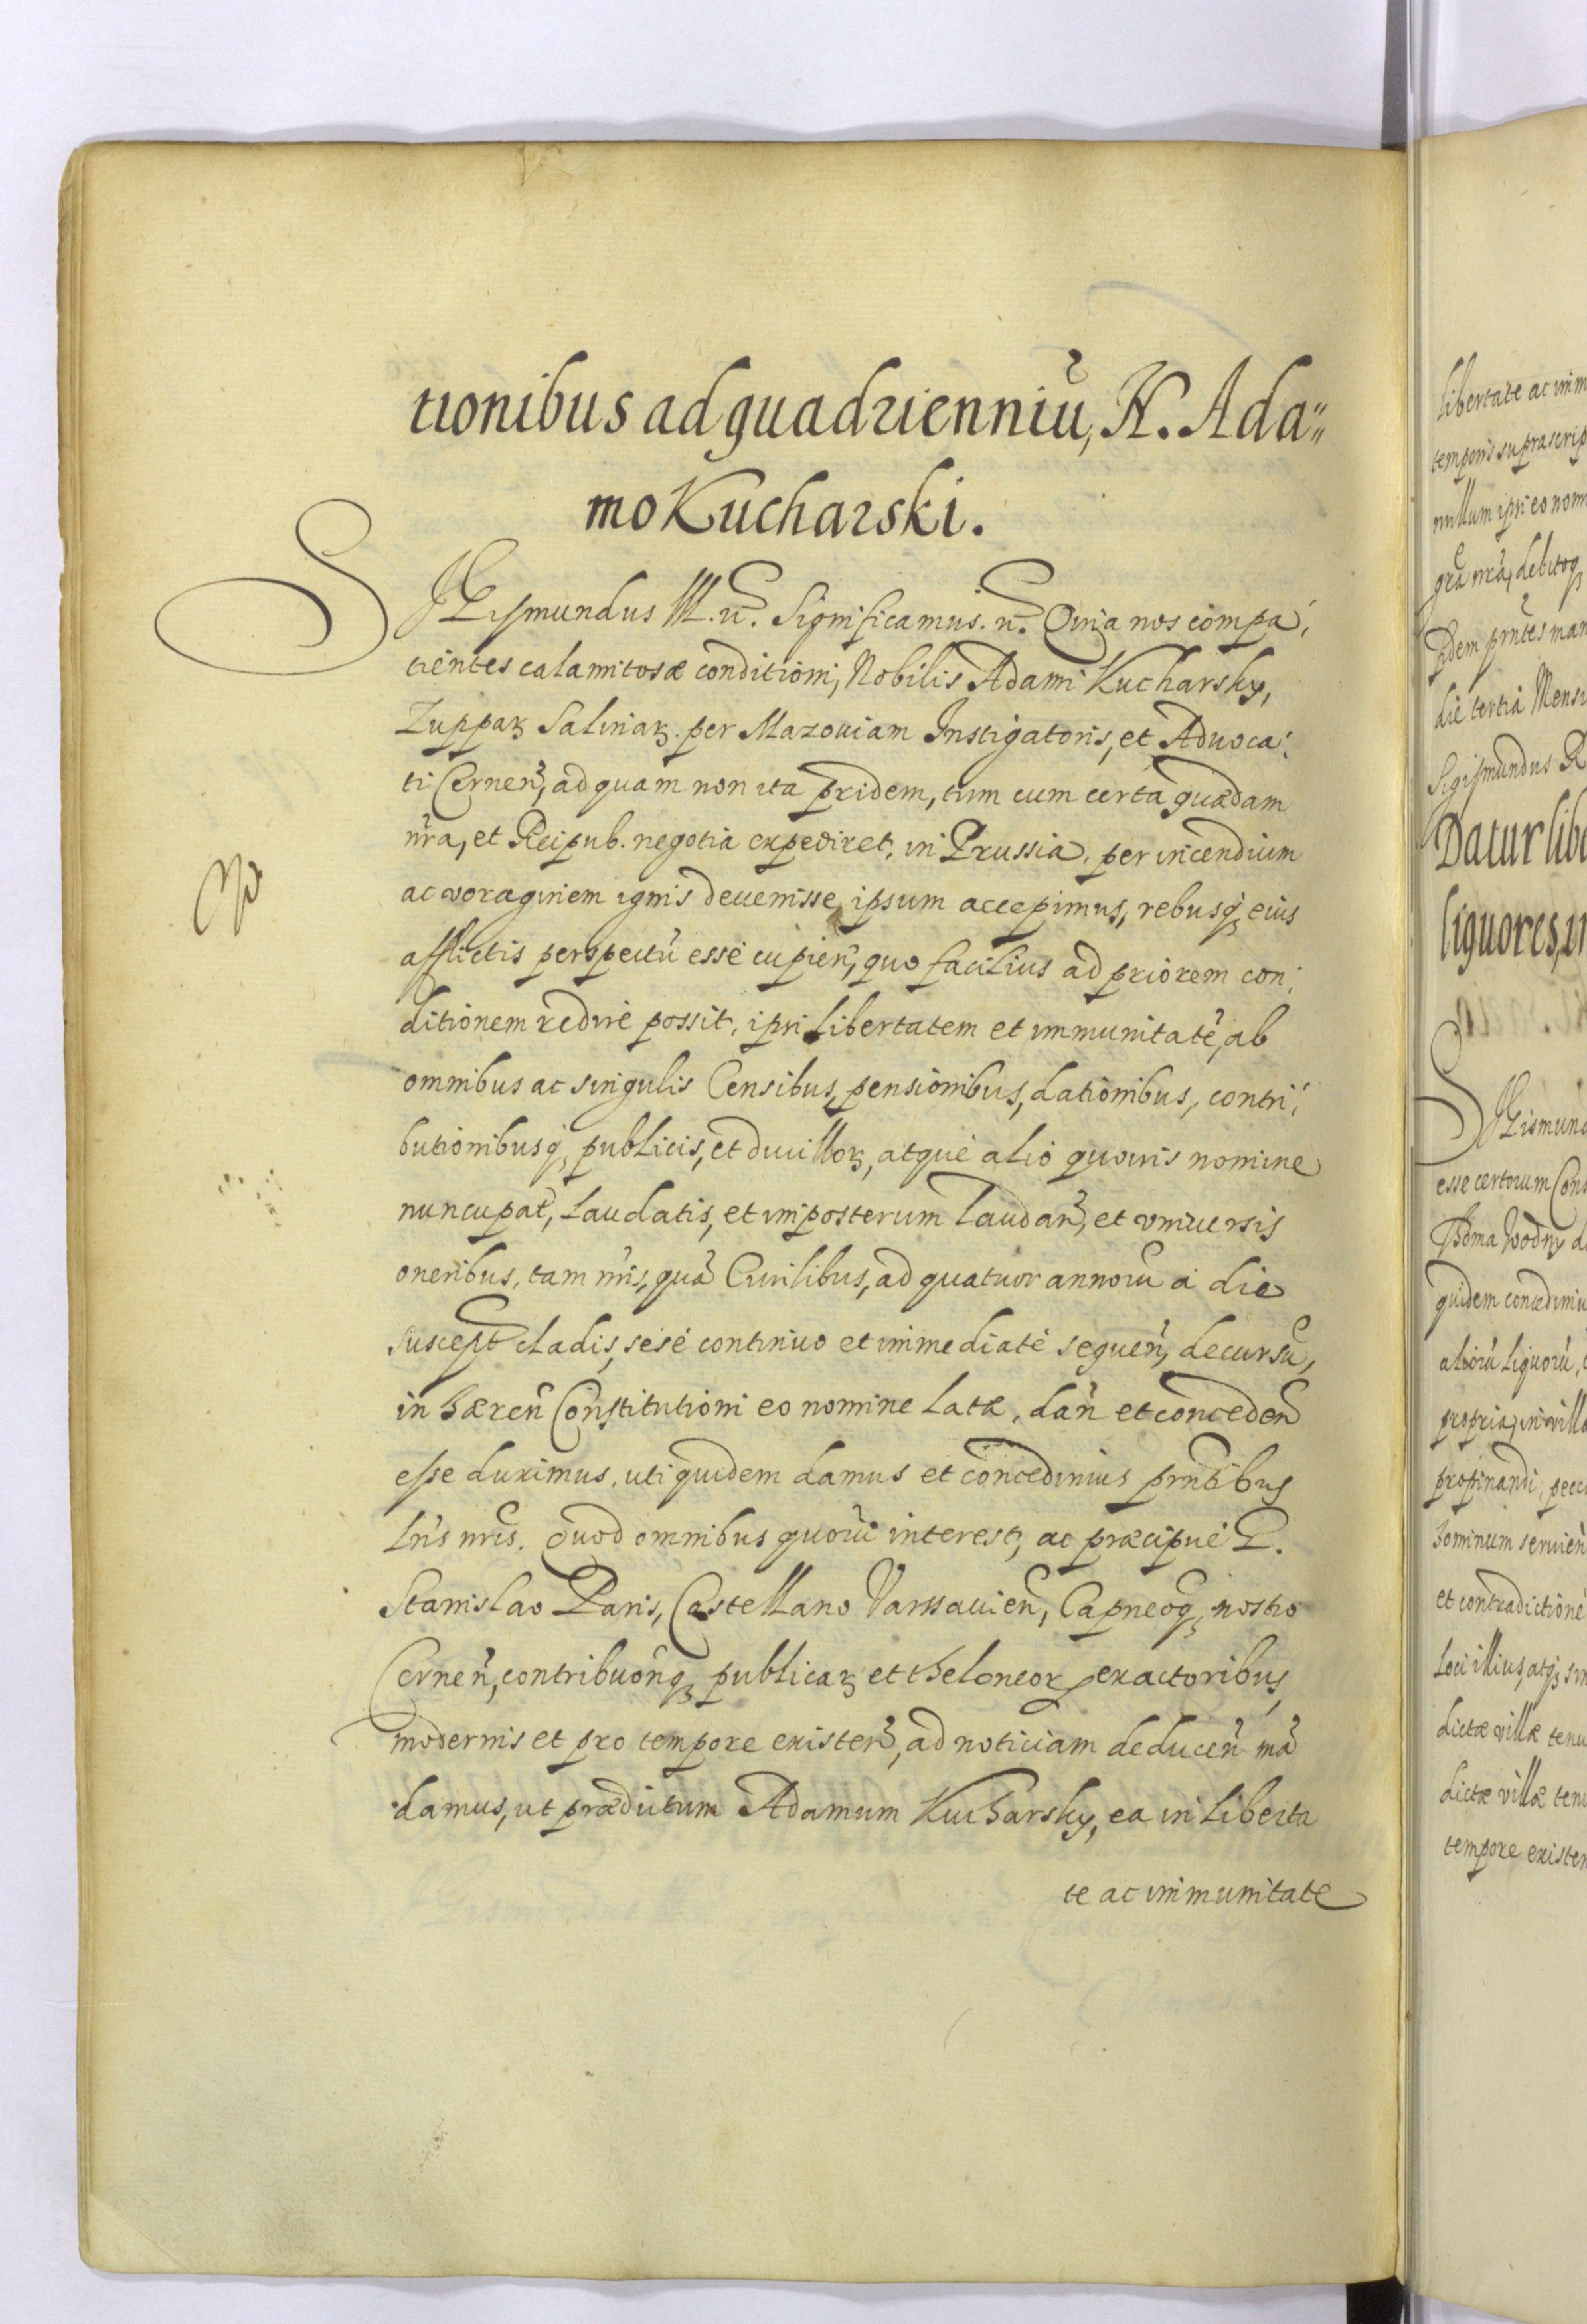 tionibus ad quadrienniū, N. Ada"
mo Kucharski.
SIGismundus III. etc. Significamus. etc. Quia nos compa,
tientes calamitosæ conditioni, Nobilis Adami Kucharsky,
Zuppaꝝ Salinaꝝ per Mazouiam Instigatoris, et Aduoca,
ti Cernen̄, ad quam non ita pridem, tum cum certa quædam
nr̄a, et Reipub. negotia expediret, in Prussia, per incendium
ac voraginem ignis deuenisse, ipsum accepimus, rebusqꝫ eius
afflictis perspectū esse cupien̄, quo facilius ad priorem con,
ditionem redire possit, ipsi libertatem et immunitatē, ab
omnibus ac singulis Censibus, pensionibus, dationibus, contri,
butionibusqꝫ publicis, et duilloꝝ, atque alio quouis nomine
nuncupat̄, laudatis, et imposterum laudan̄, et vniuersis
oneribus, tam nr̄is, quā Ciuilibus, ad quatuor annorū a die
suscept̄ cladis, sese continuo et immediatè sequen̄, decursū,
in hæren̄ Constitutioni eo nomine latæ, dan̄ et conceden̄
esse duximus, uti quidem damus et concedimus pr̄ntibus
lr̄is nr̄is. Quod omnibus quorū interest, ac præcipuè G.
Stanislao Paris, Castellano Varssauien̄, Capneoqꝫ nostro
Cernen̄, contribuōnqꝫ publicaꝝ et theloneoꝝ exactoribus,
modernis et pro tempore existen̄, ad noticiam deducen̄ mā
damus, ut prædictum Adamum Kucharsky, ea in liberta
te ac immunitate
libertate ac imm
temporis suprascrip
nullum ipsi eo nom
grā nrā, debitoqꝫ
die tertia Mensi
Sigismundus R
Datur libe
liquores, in
SIGismund
esse certorum Cons
quidem concedimu
aliorū liquorū,
propria, in villa
propinandi, peco
hominum seruien̄
et contradictione
loci illius, atqꝫ sin
dictæ villæ tenu
dictæ villæ tenu
tempore existen